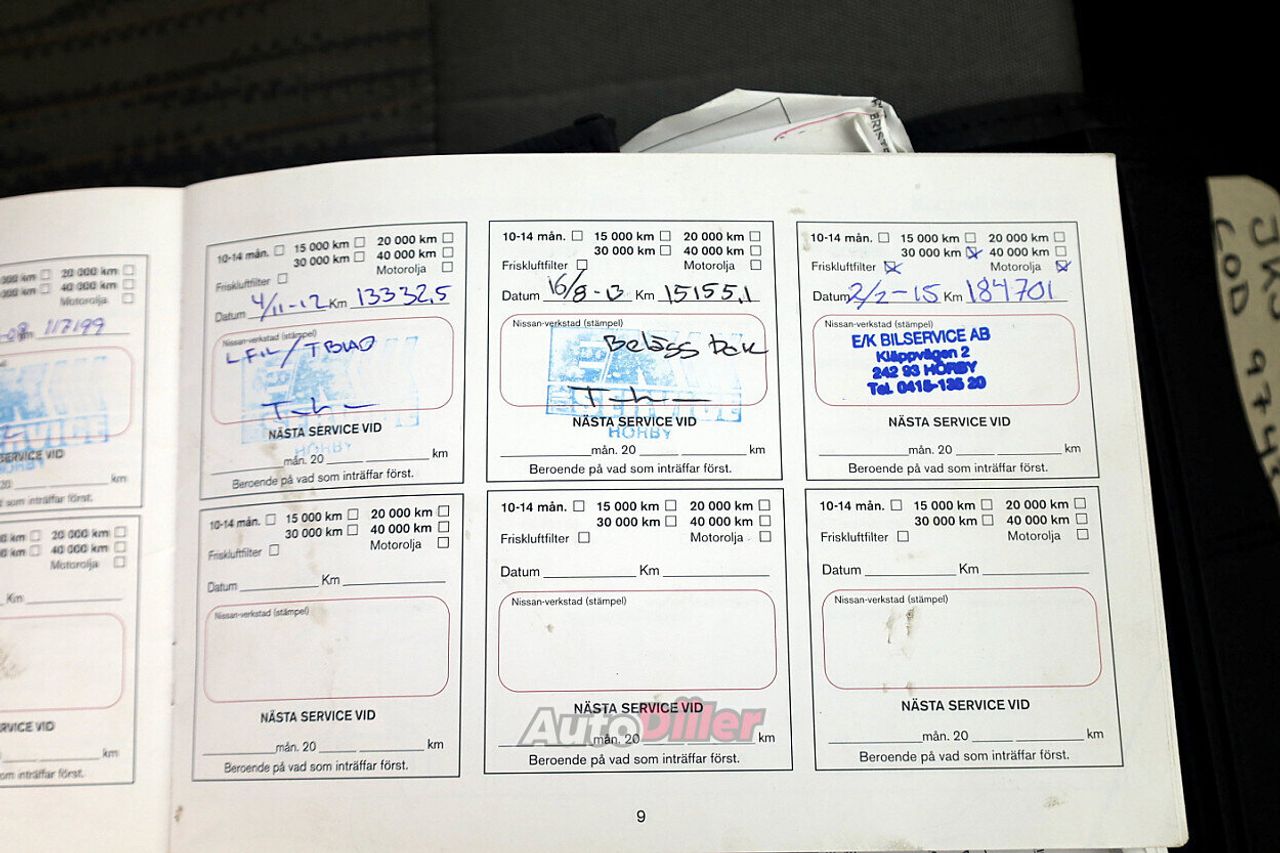 BRISTE
20 000 km
40 000 km
Motorolja
117199
SERVICE VID
km
om inträffar först.
20 000 km
40 000 km
Motorolja
Km
RVICE VID
km
om inträffar först.
10-14 mån. 15 000 km 20 000 km
30 000 km 40 000 km
Friskluftfilter Motorolja
Datum 4/11-12 Km 13332,5
Nissan-verkstad (stämpel)
HÖRBY
NÄSTA SERVICE VID
mån. 20 km
Beroende på vad som inträffar först.
10-14 mån. 15 000 km 20 000 km
30 000 km 40 000 km
Friskluftfilter Motorolja
Datum 16/8-13 Km 15155,1
Nissan-verkstad (stämpel)
SERVICE
HÖRBY
NÄSTA SERVICE VID
mån. 20 km
Beroende på vad som inträffar först.
10-14 mån. 15 000 km 20 000 km
30 000 km 40 000 km
Friskluftfilter Motorolja
Datum 2/2-15 Km 184701
Nissan-verkstad (stämpel)
E/K BILSERVICE AB
Kläppvägen 2
242 93 HÖRBY
Tel. 0415-135 20
NÄSTA SERVICE VID
mån. 20 km
Beroende på vad som inträffar först.
10-14 mån. 15 000 km 20 000 km
30 000 km 40 000 km
Friskluftfilter Motorolja
Datum Km
Nissan-verkstad (stämpel)
NÄSTA SERVICE VID
mån. 20 km
Beroende på vad som inträffar först.
10-14 mån. 15 000 km 20 000 km
30 000 km 40 000 km
Friskluftfilter Motorolja
Datum Km
Nissan-verkstad (stämpel)
NÄSTA SERVICE VID
mån. 20 km
Beroende på vad som inträffar först.
10-14 mån. 15 000 km 20 000 km
30 000 km 40 000 km
Friskluftfilter Motorolja
Datum Km
Nissan-verkstad (stämpel)
NÄSTA SERVICE VID
mån. 20 km
Beroende på vad som inträffar först.
AutoDiler
9
COD